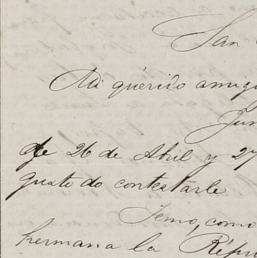 San
Mi querido amig
Jun
de 26 de Abril y 27
gusto de contestarle
Temo, como
hermana la Répu